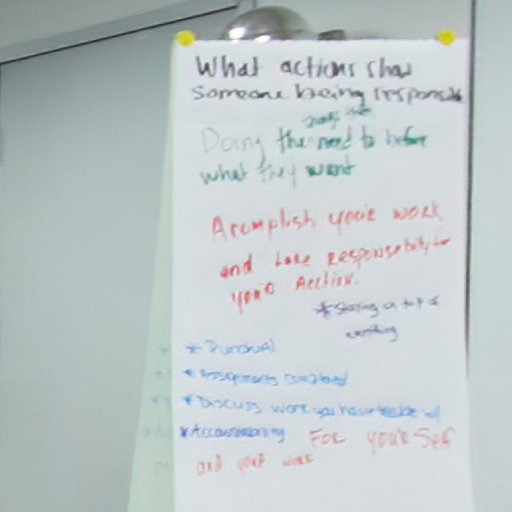 What actions show
someone being responsible
Doing the need to before
what they want
Acomplish youre work
and take Responsability for
your Action.
*Staying on top of
everything
* Punctual
* Assignments Completed
* Discuss work you have
*Accountability For your Self
and your work